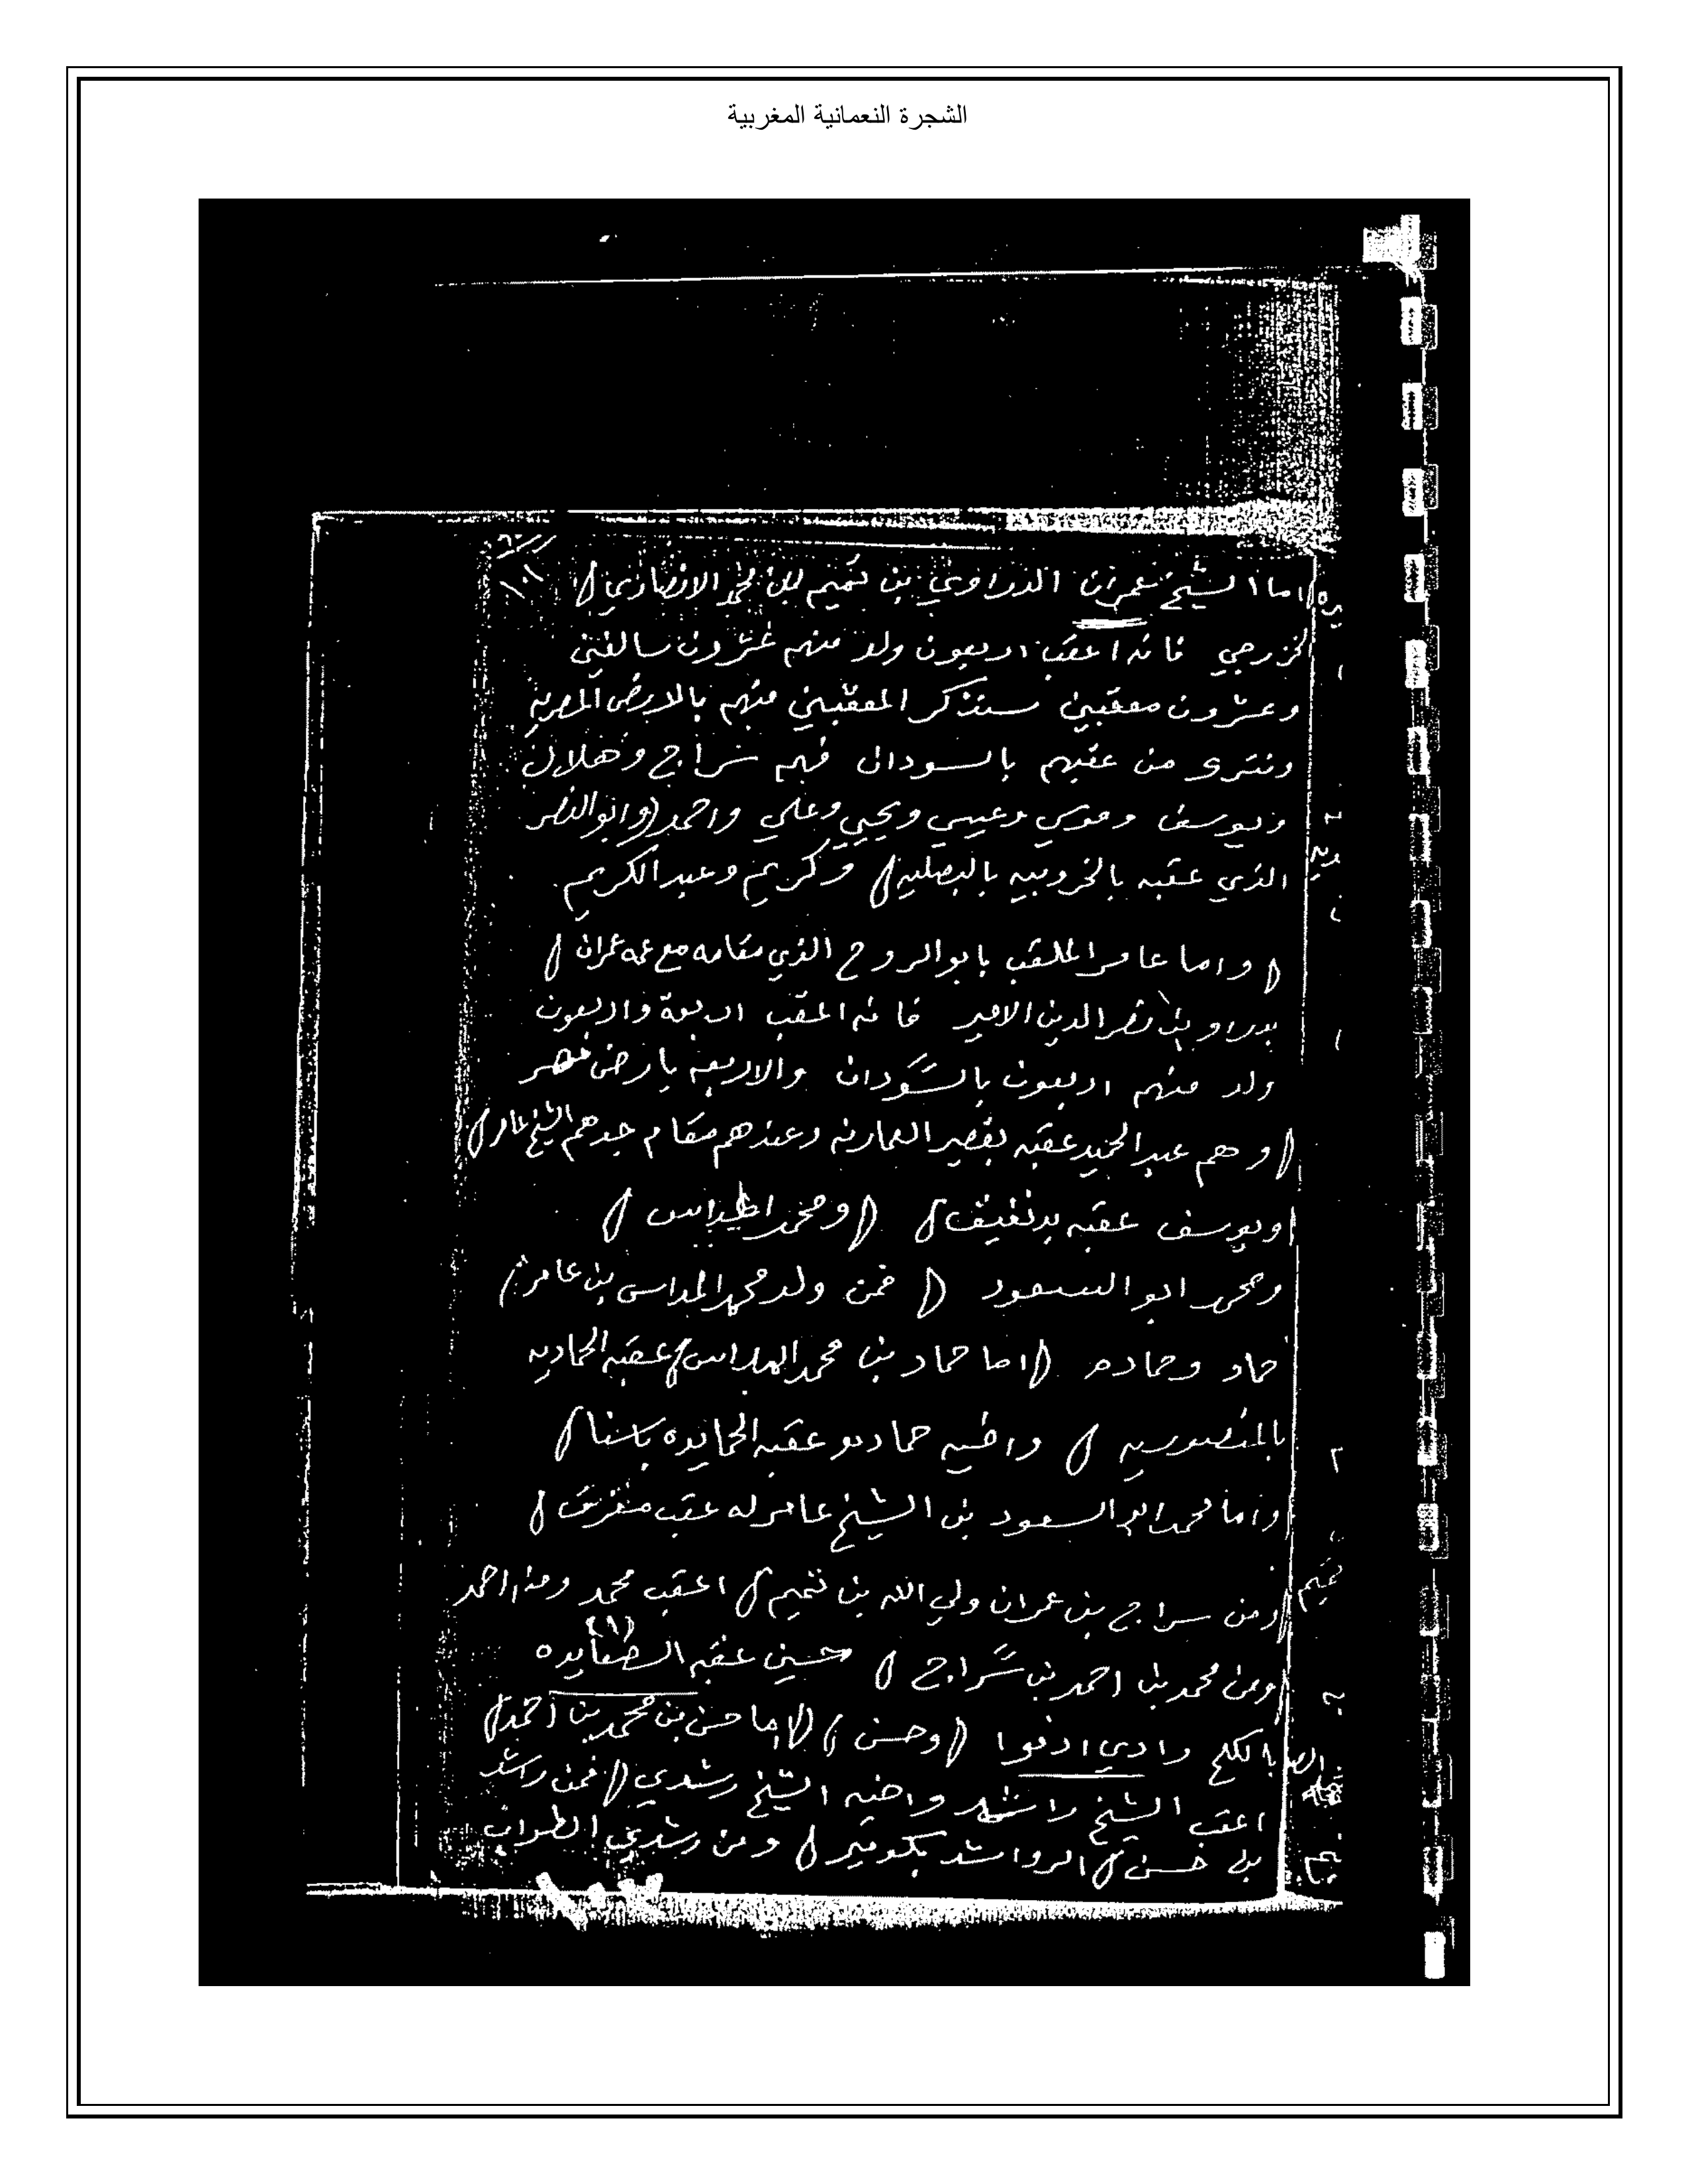 الشجرة النعمانية المغربية
اما الشيخ عمران الدراوي بن تميم بن محمد الانصاري
الخزرجي فانه اعقب اربعون ولد منهم عشرون سالفين
وعشرون معقبين سنذكر المعقبين منهم بالارض المصريه
ونترى من عقبهم بالسودان فهم سراج وهلال
ويوسف وموسي وعيسي ويحيي وعلي واحمد (وابوالنصر
الذي عقبه بالخروبيه بالبصليه) وكريم وعبدالكريم
(واما عامر الملقب بابو الروح الذي مقامه مع عمه عمران)
بدراو بن نصر الدين الامير فانه اعقب اربعة واربعون
ولد منهم اربعون بالسودان والاربعه بارض مصر
(وهم عبد الحميد عقبه بقصير العمارنه وعندهم مقام جدهم الشيخ عامر)
ويوسف عقبه بدنغيق) (ومحمد
ومحمد ابو السعود (فمن ولد محمد المداس بن عامر)
حماد وحماده (اما حماد بن محمد المداس) عقبه الحماديه
بالمنصوريه) واخيه حماده عقبه الحمايده باسنا)
واما محمد ابو السعود بن الشيخ عامر له عقب متفرق)
(ومن سراج بن عمران ولي الله بن تميم) اعقب محمد ومنه احمد
ومن محمد بن احمد بن سراج) حسين عقبه الصعايده (١)
بالكلح وادي ادفوا (وحسن) (اما حسن بن محمد بن احمد)
اعقب الشيخ راشد واخيه الشيخ رشدي (فمن راشد
بن حسن) الرواشد بكومير) ومن رشدي الطواب